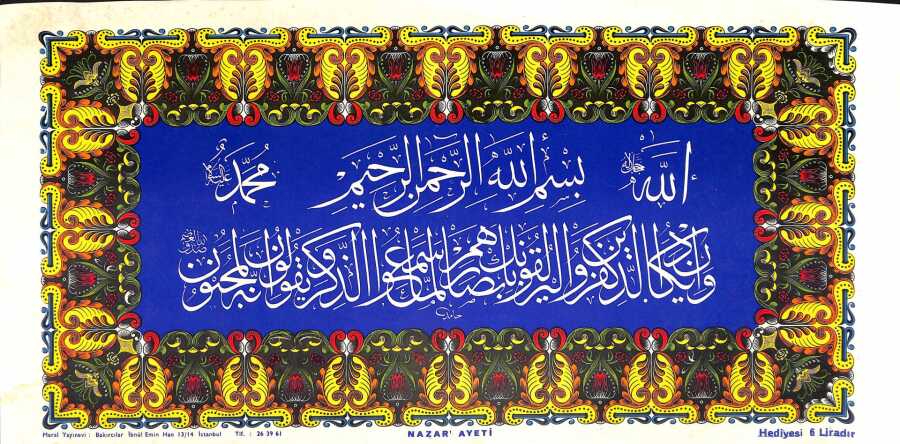 الله جل جلاله بسم الله الرحمن الرحيم محمد عليه السلام
وان يكاد الذين كفروا ليزلقونك بابصارهم لما سمعوا الذكر ويقولون انه لمجنون
حامد
Meral Yayınevi : Bakırcılar İsmail Emin Han 13/14 İstanbul Tlf. : 26 39 61
NAZAR' AYETİ
Hediyesi 6 Liradır